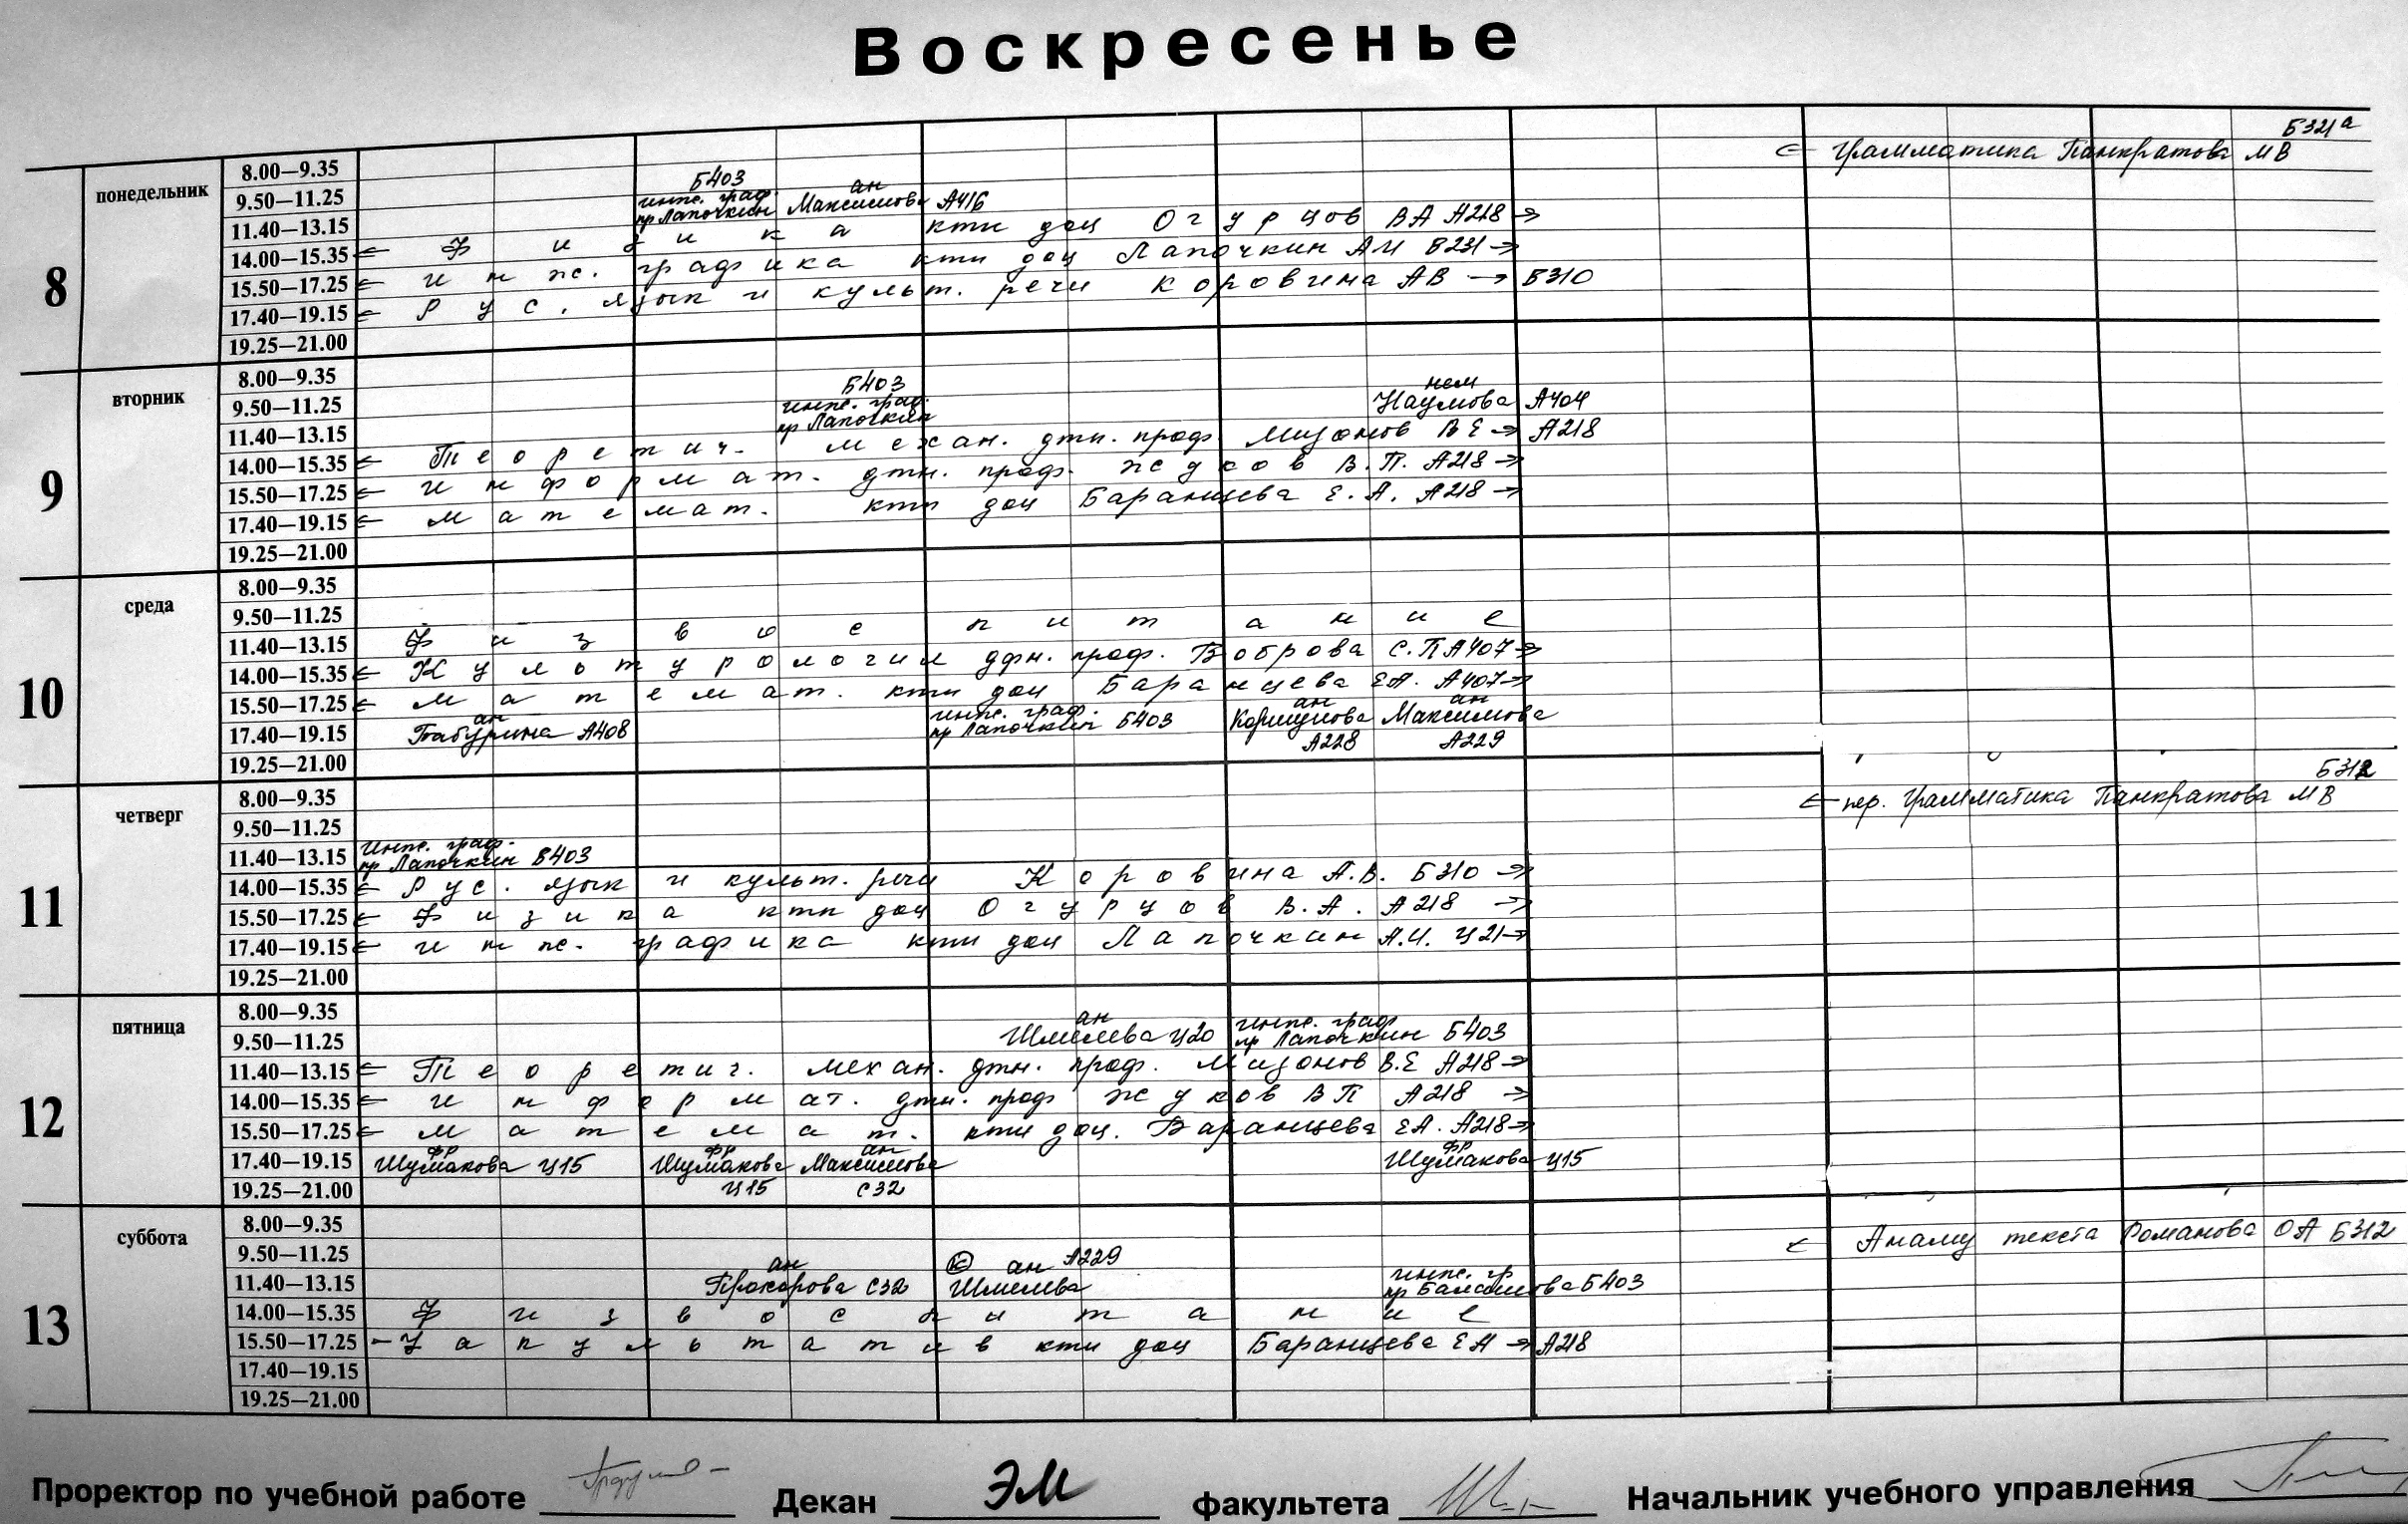 Воскресенье
8
понедельник
8.00—9.35
Б321а
← Грамматика Панкратова МВ
9.50—11.25
Б403
инж. граф. пр Лапочкин
ан Максимова А416
11.40—13.15
14.00—15.35 ← Физика ктн доц Огурцов ВА А218 →
15.50—17.25 ← инж. графика ктн доц Лапочкин АИ В231 →
17.40—19.15 ← Рус. язык и культ. речи Коровина АВ → Б310
19.25—21.00
9
вторник
8.00—9.35
9.50—11.25
Б403
инж. граф. пр Лапочкин
нем Наумова А404
11.40—13.15
14.00—15.35 ← Теоретич. механ. дтн. проф. Мизонов ВЕ → А218
15.50—17.25 ← информат. дтн. проф. Жуков В.П. А218 →
17.40—19.15 ← математ. ктн доц Баранцева Е.А. А218 →
19.25—21.00
10
среда
8.00—9.35
9.50—11.25
11.40—13.15 Физвоспитание
14.00—15.35 ← Культурология дфн. проф. Боброва С.П А407 →
15.50—17.25 ← математ. ктн доц Баранцева ЕА. А407 →
17.40—19.15
ан Табурина А408
инж. граф. пр Лапочкин Б403
ан Коршунова А228
ан Максимова А229
19.25—21.00
11
четверг
8.00—9.35
Б312
← пер. Грамматика Панкратова МВ
9.50—11.25
11.40—13.15 инж. граф. пр Лапочкин Б403
14.00—15.35 ← Рус. язык и культ. речи Коровина А.В. Б310 →
15.50—17.25 ← Физика ктн доц Огурцов В.А. А218 →
17.40—19.15 ← инж. графика ктн доц Лапочкин А.И. Ц21 →
19.25—21.00
12
пятница
8.00—9.35
9.50—11.25
ан Шмелева Ц20
инж. граф пр Лапочкин Б403
11.40—13.15 ← Теоретич. механ. дтн. проф. Мизонов В.Е А218 →
14.00—15.35 ← информат. дтн. проф Жуков ВП А218 →
15.50—17.25 ← математ. ктн доц. Баранцева ЕА. А218 →
17.40—19.15
фр Шумакова Ц15
фр Шумакова Ц15
ан Максимова С32
фр Шумакова Ц15
19.25—21.00
13
суббота
8.00—9.35
← Анализ текста Романова ОА Б312
9.50—11.25
11.40—13.15
ан Прохорова С32
к ан А229 Шмелева
инж. гр пр Балашова Б403
14.00—15.35 Физвоспитание
15.50—17.25 — Факультатив ктн доц Баранцева ЕА → А218
17.40—19.15
19.25—21.00
Проректор по учебной работе
Декан ЭМ факультета
Начальник учебного управления